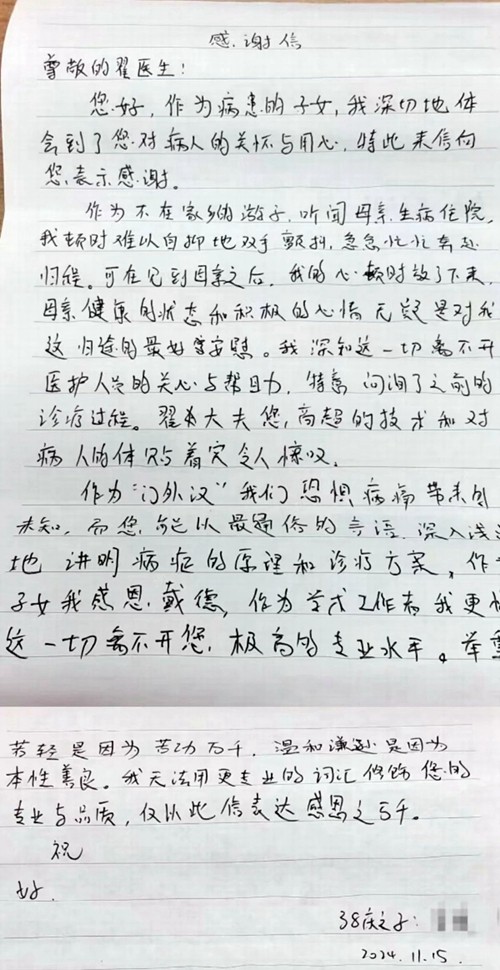 感谢信
尊敬的翟医生：
您好，作为病患的子女，我深切地体
会到了您对病人的关怀与用心，特此来信向
您表示感谢。
作为不在家乡的游子，听闻母亲生病住院，
我顿时难以自抑地双手颤抖，急急忙忙奔赴
归程。可在见到母亲之后，我的心顿时放了下来，
母亲健康的状态和积极的心情无疑是对我
这归途的最好宽慰。我深知这一切离不开
医护人员的关心与帮助，特意问询了之前的
诊疗过程。翟大夫您，高超的技术和对
病人的体贴着实令人惊叹。
作为“门外汉”我们恐惧病痛带来的
未知，而您，能以最通俗的言语，深入浅
地讲明病症的原理和诊疗方案，作
子女我感恩戴德，作为学术工作者我更
这一切离不开您，极高的专业水平。举重
若轻是因为苦功万千，温和谦逊是因为
本性善良。我无法用更专业的词汇修饰您的
专业与品质，仅以此信表达感恩之万千。
祝
好。
38床之子：
2024.11.15.